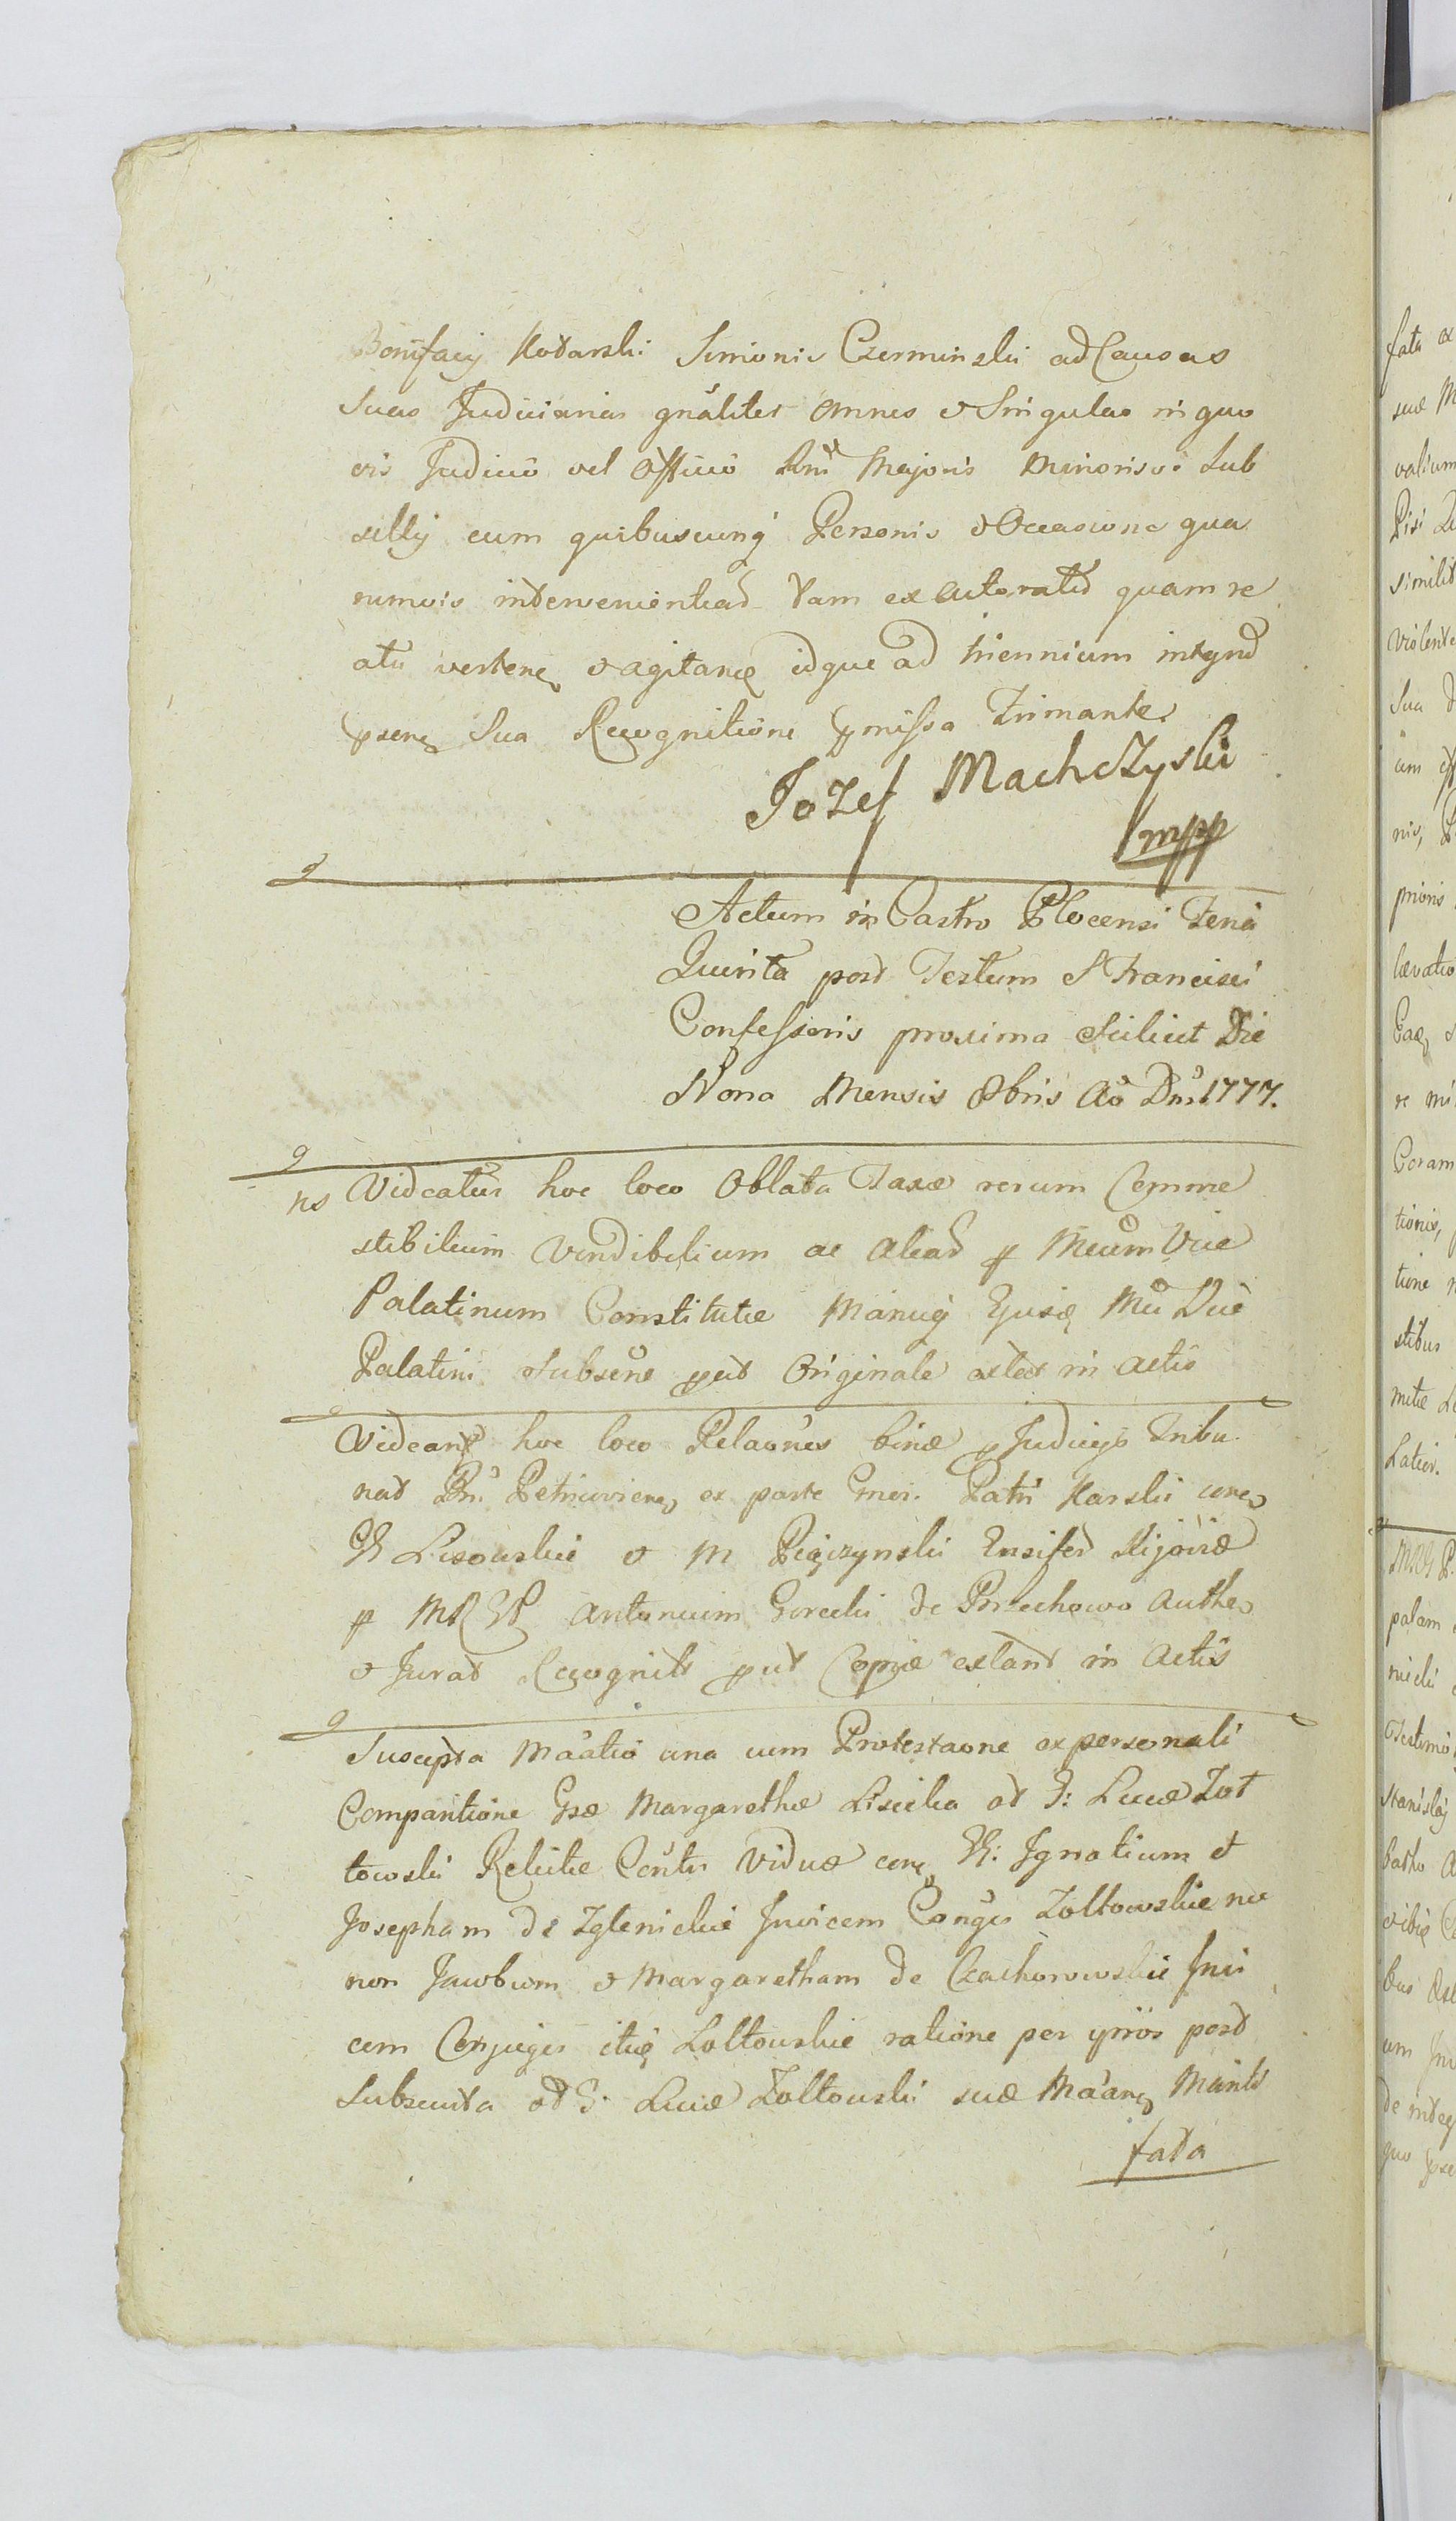 Bonifacy Kotarski Simonis Czerminski ad Causas
Suas Judiciarias gnaliter omnes et Singulas in quo
vis Judicio vel Officio Rni Majoris Minorisve Sub
sellij cum quibuscunq Personis et Occasione qua
rumvis intervenientiad tam ex actoratu quam re
atu verten et agitan idque ad triennium integrud
psene Sua Recognitione pmissa Firmante
Jozef Machczyski
mpp
Actum in Castro Plocensi Feria
Quinta post Festum S Francisci
Confessoris proxima Scilicet Die
Nona Mensis 8bris Ao Dni 1777.
ns Videatur hoc loco Oblata Taxæ rerum Comme
stibilium Vendibilium ac aliad p Mcum Vice
Palatinum Constitutæ Manuq Ejusq Mci Vice
Palatini Subscne put Originale extat in Actis
Videant hoc loco Relaones binæ p Judicijs Tribu
nat Rni Petricovien ex parte Patris Karski con
G Lisowskie et M Pigczynski Ensifer
p MRGP Antonium Gorecki de Przechowo Authen
et Jurat Recognit put Copiæ extant in Actis
Suscepta Maatio una cum Protestaone ex personali
Comparitione Gsæ Margarethæ Lisicka ol G: Lucæ Zoł
towski Relictæ Conts Viduæ con G: Ignatium et
Josepham de Zglenickie Invicem Conges Zołtowskie nec
non Jacobum et Margaretham de Czachorowskie Invi
cem Conjuges itiq Zołtowskie ratione per ipsos post
Subsecuta ol G. Lucæ Zołtowski suæ Maan Mariti
fata